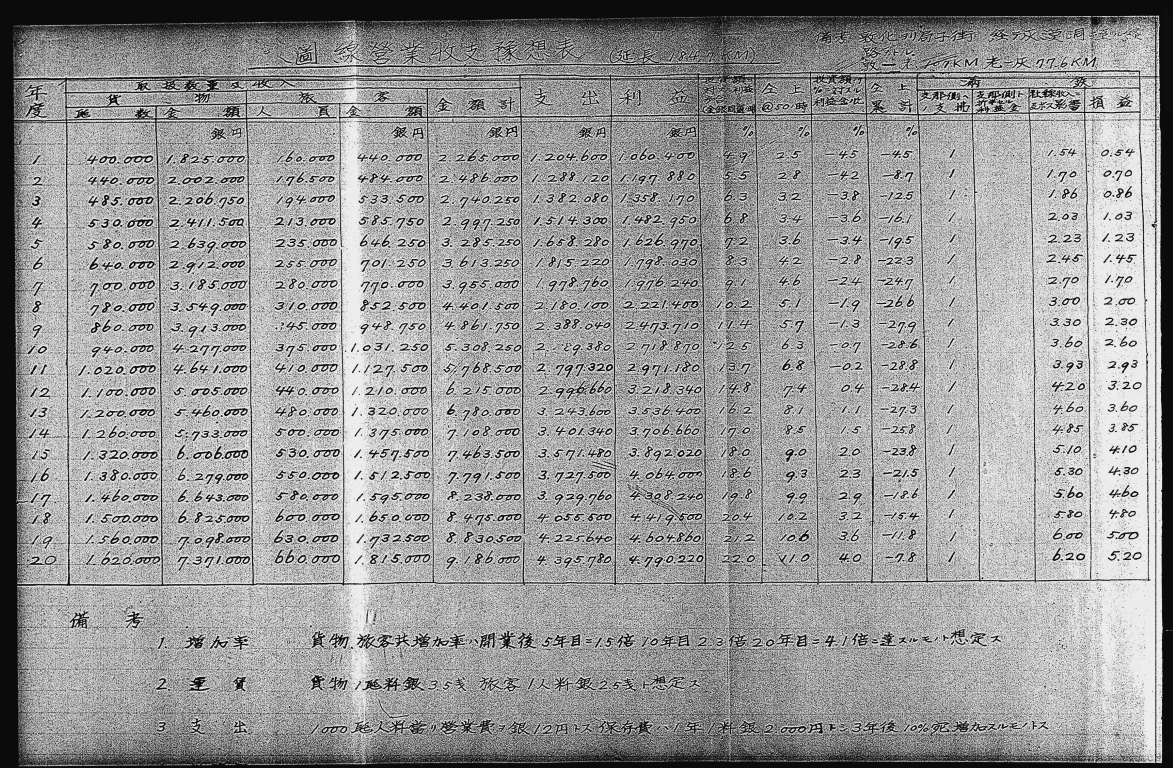 圖線營業收支豫想表 (延長 184.7KM)
備考 敦化
取扱數量及收入 支出 利益 仝上 仝上 滿鐵
年度 貨物 旅客 金額計 @50%時 累計 損益
噸數 金額 人員 金額
銀円 銀円 銀円 銀円 銀円 % % % %
1 400.000 1.825.000 160.000 440.000 2.265.000 1.204.600 1.060.400 4.9 2.5 -4.5 -4.5 1 1.54 0.54
2 440.000 2.002.000 176.500 484.000 2.486.000 1.288.120 1.197.880 5.5 2.8 -4.2 -8.7 1 1.70 0.70
3 485.000 2.206.750 194.000 533.500 2.740.250 1.382.080 1.358.170 6.3 3.2 -3.8 -12.5 1 1.86 0.86
4 530.000 2.411.500 213.000 585.750 2.997.250 1.514.300 1.482.950 6.8 3.4 -3.6 -16.1 1 2.03 1.03
5 580.000 2.639.000 235.000 646.250 3.285.250 1.658.280 1.626.970 7.2 3.6 -3.4 -19.5 1 2.23 1.23
6 640.000 2.912.000 255.000 701.250 3.613.250 1.815.220 1.798.030 8.3 4.2 -2.8 -22.3 1 2.45 1.45
7 700.000 3.185.000 280.000 770.000 3.955.000 1.978.760 1.976.240 9.1 4.6 -2.4 -24.7 1 2.70 1.70
8 780.000 3.549.000 310.000 852.500 4.401.500 2.180.100 2.221.400 10.2 5.1 -1.9 -26.6 1 3.00 2.00
9 860.000 3.913.000 345.000 948.750 4.861.750 2.388.040 2.473.710 11.4 5.7 -1.3 -27.9 1 3.30 2.30
10 940.000 4.277.000 375.000 1.031.250 5.308.250 2.589.380 2.718.870 12.5 6.3 -0.7 -28.6 1 3.60 2.60
11 1.020.000 4.641.000 410.000 1.127.500 5.768.500 2.797.320 2.971.180 13.7 6.8 -0.2 -28.8 1 3.93 2.93
12 1.100.000 5.005.000 440.000 1.210.000 6.215.000 2.996.660 3.218.340 14.8 7.4 0.4 -28.4 1 4.20 3.20
13 1.200.000 5.460.000 480.000 1.320.000 6.780.000 3.243.600 3.536.400 16.2 8.1 1.1 -27.3 1 4.60 3.60
14 1.260.000 5.733.000 500.000 1.375.000 7.108.000 3.401.340 3.706.660 17.0 8.5 1.5 -25.8 1 4.85 3.85
15 1.320.000 6.006.000 530.000 1.457.500 7.463.500 3.571.480 3.892.020 18.0 9.0 2.0 -23.8 1 5.10 4.10
16 1.380.000 6.279.000 550.000 1.512.500 7.791.500 3.727.500 4.064.000 18.6 9.3 2.3 -21.5 1 5.30 4.30
17 1.460.000 6.643.000 580.000 1.595.000 8.238.000 3.929.760 4.308.240 19.8 9.9 2.9 -18.6 1 5.60 4.60
18 1.500.000 6.825.000 600.000 1.650.000 8.475.000 4.055.500 4.419.500 20.4 10.2 3.2 -15.4 1 5.80 4.80
19 1.560.000 7.098.000 630.000 1.732.500 8.830.500 4.225.640 4.604.860 21.2 10.6 3.6 -11.8 1 6.00 5.00
20 1.620.000 7.371.000 660.000 1.815.000 9.186.000 4.395.780 4.790.220 22.0 11.0 4.0 -7.8 1 6.20 5.20
備考
1. 增加率 貨物.旅客共增加率ハ開業後5年目ニ1.5倍10年目2.3倍20年目ニ4.1倍ニ達スルモノト想定ス
2. 運賃 貨物1瓲料銀3.5戔 旅客1人料銀2.5戔ト想定ス
3 支出 1000瓲人料當リ營業費ヲ銀12円トス保存費ハ1年1料銀2.000円トシ3年後10%宛增加スルモノトス